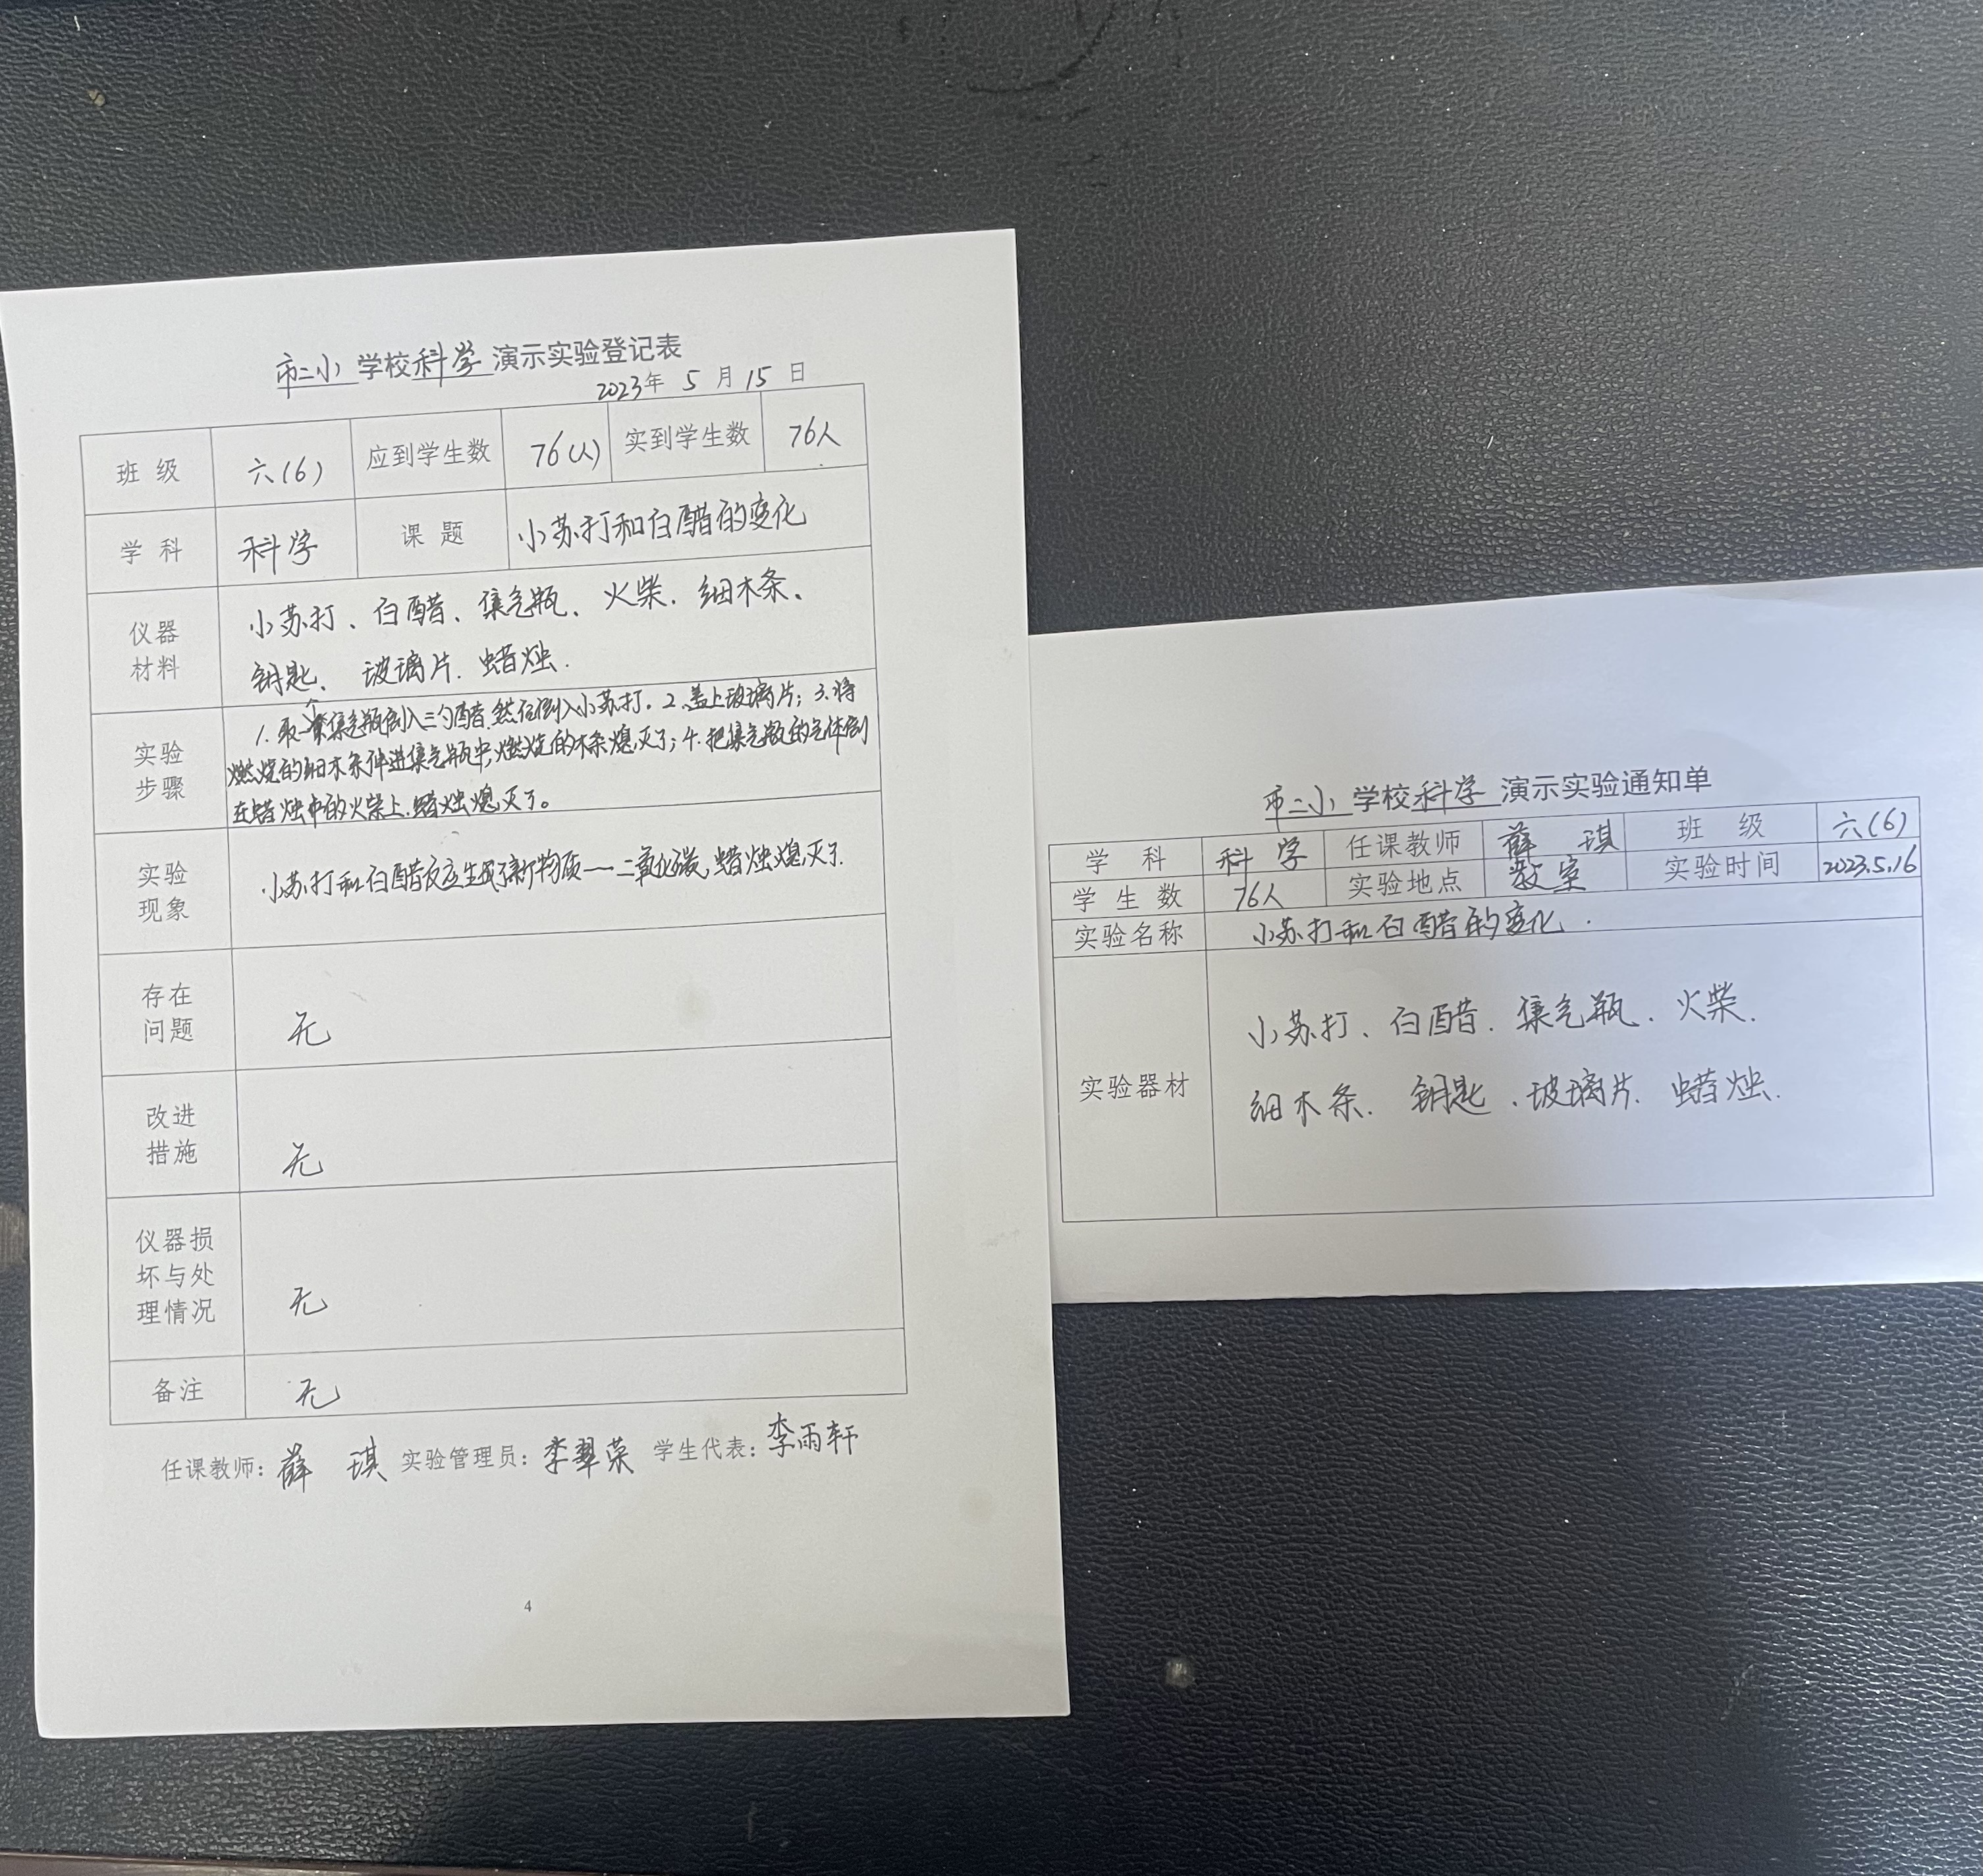 市二小 学校 科学 演示实验登记表
2023年 5 月 15 日
班 级 六(6) 应到学生数 76(人) 实到学生数 76人
学 科 科学 课 题 小苏打和白醋的变化
仪器材料 小苏打、白醋、集气瓶、火柴、细木条、
钥匙、玻璃片、蜡烛.
实验步骤 1.取一集气瓶倒入三勺醋,然后倒入小苏打。2.盖上玻璃片;3.将
燃烧的细木条伸进集气瓶中,燃烧的木条熄灭了;4.把集气瓶的气体倒
在蜡烛中的火柴上.蜡烛熄灭了。
实验现象 小苏打和白醋反应生成了新物质——二氧化碳,蜡烛熄灭了.
存在问题 无
改进措施 无
仪器损坏与处理情况 无
备注 无
任课教师: 薛 琪 实验管理员: 李翠荣 学生代表: 李雨轩
4
市二小 学校 科学 演示实验通知单
学 科 科 学 任课教师 薛 琪 班 级 六(6)
学 生 数 76人 实验地点 教室 实验时间 2023.5.16
实验名称 小苏打和白醋的变化.
实验器材 小苏打、白醋.集气瓶.火柴.
细木条.钥匙.玻璃片.蜡烛.